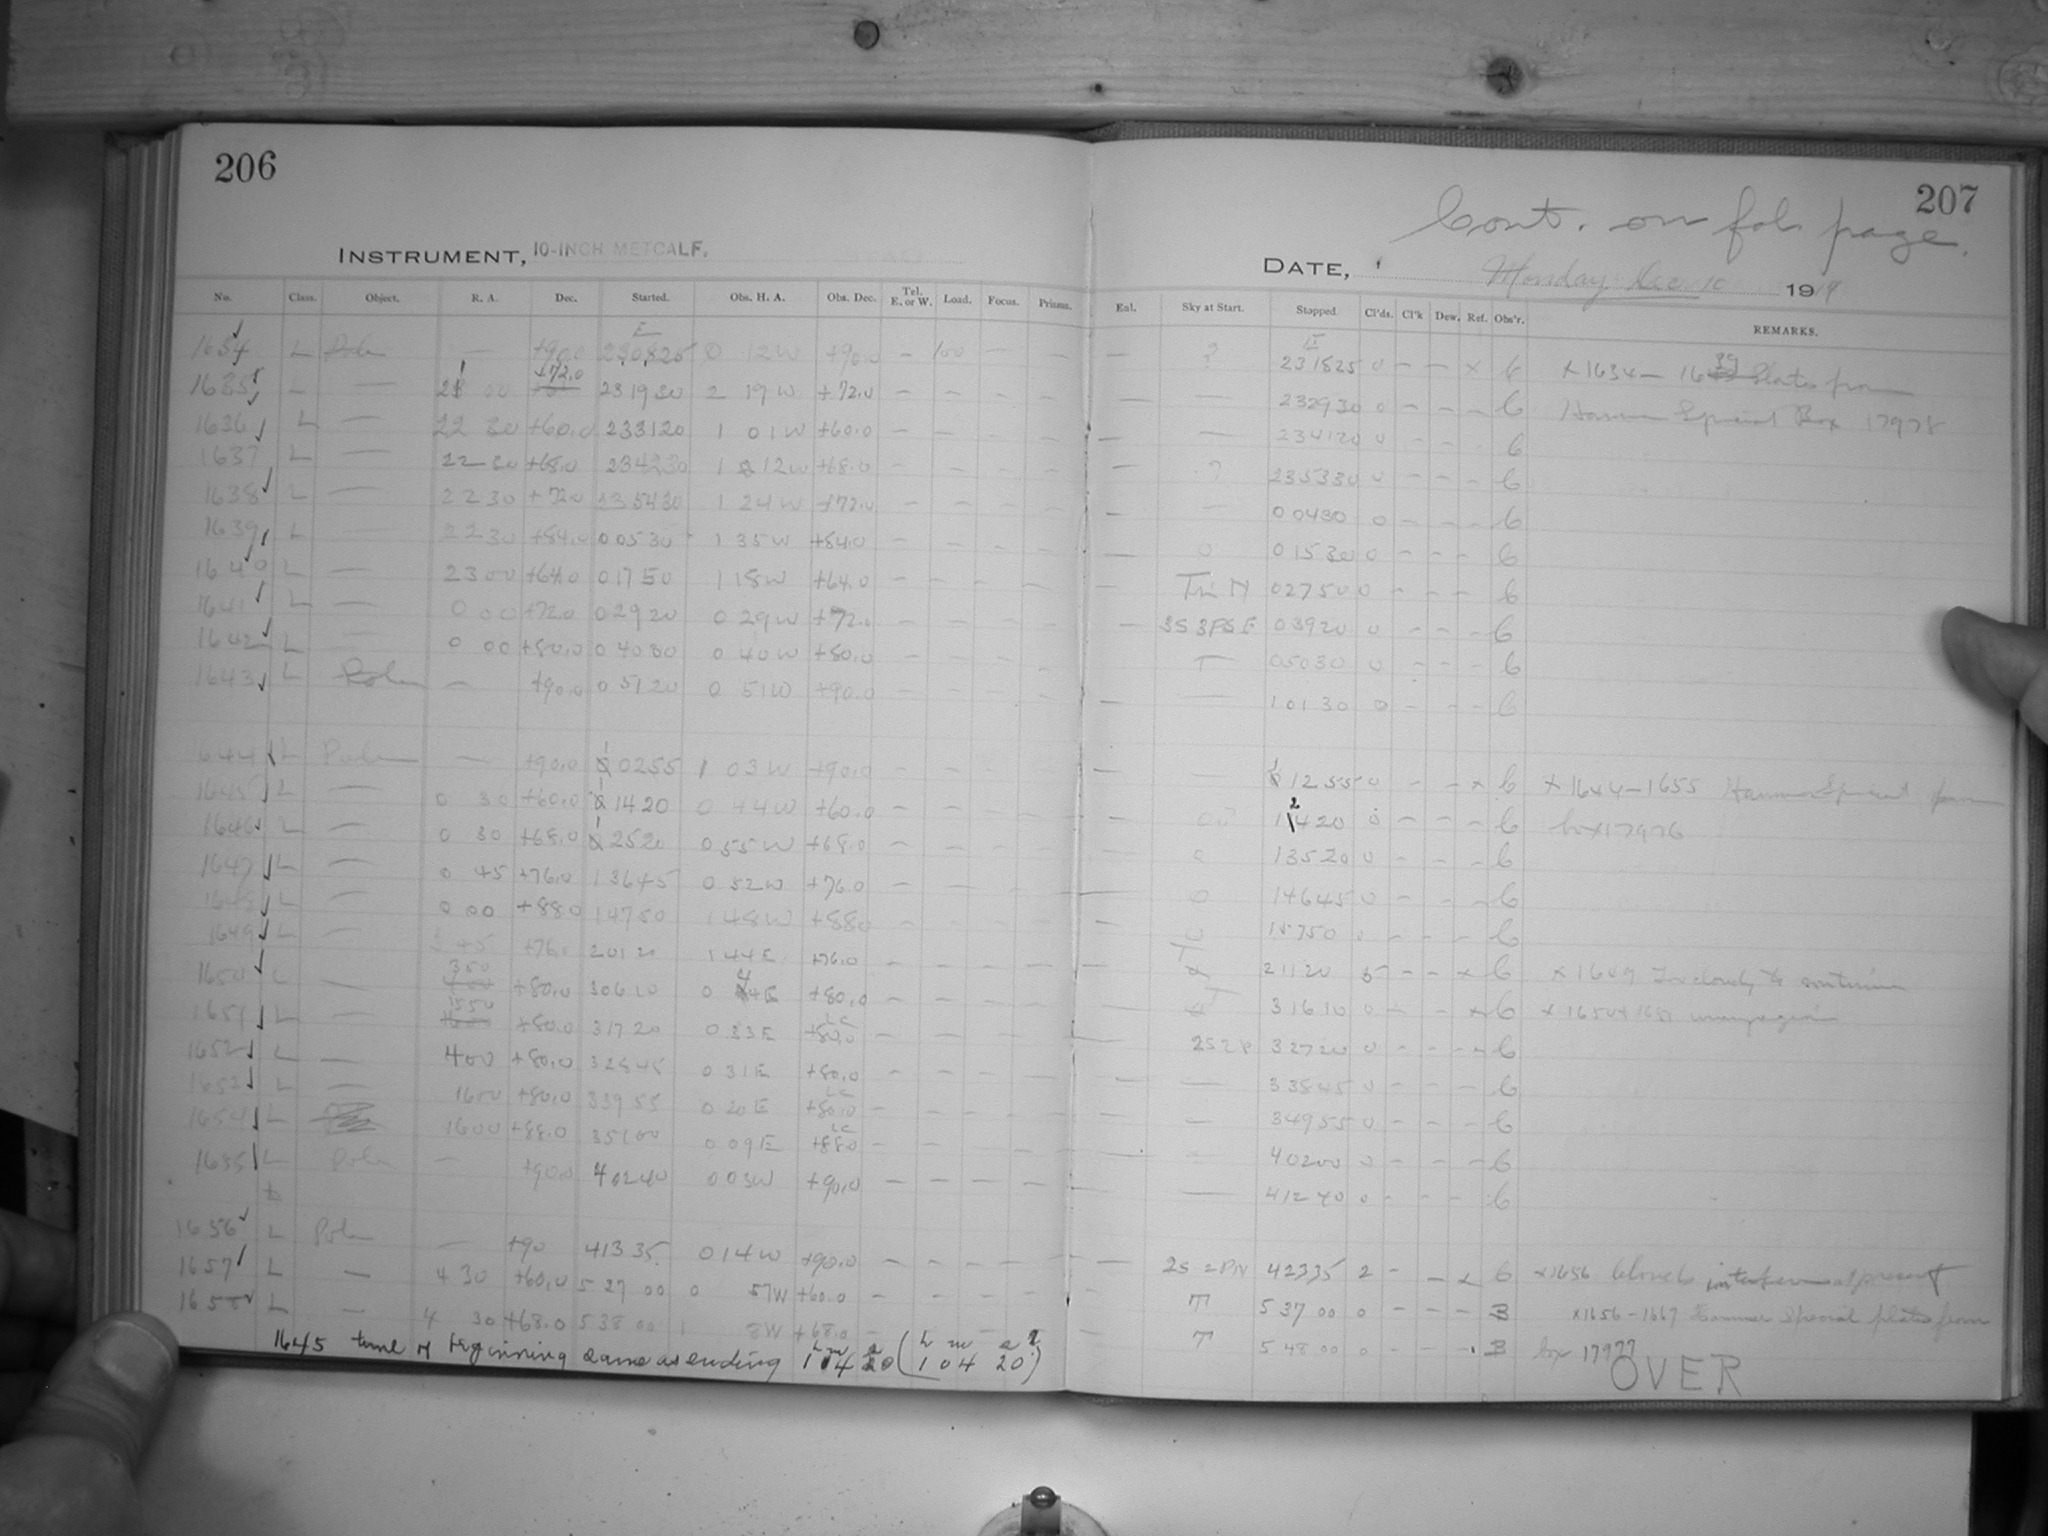 206
207
Cont. on fol. page.
INSTRUMENT, 10-INCH METCALF.
DATE, Monday Dec 10 1919
No. Class. Object. R. A. Dec. Started. Obs. H. A. Obs. Dec. Tel. E. or W. Load. Focus. Prisms. Enl. Sky at Start. Stopped Cl'ds. Cl'k Dew. Ref. Obs'r. REMARKS.
1634 L Pole — +90.0 230825 0 12W +90.0 — 100 — — — ? 231825 0 — — x 6 x 1634 — 1639 Plates from
1635 L — 00 +72.0 231930 2 19W +72.0 — — — — — — 232930 0 — — — 6 Hammer Special Box 17978
1636 L — 22 30 +60.0 233120 1 01W +60.0 — — — — — — 234120 0 — — — 6
1637 L — 22 30 +68.0 234330 1 12W +68.0 — — — — — ? 235330 0 — — — 6
1638 L — 22 30 +72.0 235430 1 24W +72.0 — — — — — — 00430 0 — — — 6
1639 L — 22 30 +84.0 00530 1 35W +84.0 — — — — — 0 01530 0 — — — 6
1640 L — 23 00 +64.0 01750 1 18W +64.0 — — — — — 02750 0 — — — 6
1641 L — 0 00 +72.0 02920 0 29W +72.0 — — — — — 03920 0 — — — 6
1642 L — 0 00 +80.0 04030 0 40W +80.0 — — — — — T 05030 0 — — — 6
1643 L Pole — +90.0 05120 0 51W +90.0 — — — — — — 10130 0 — — — 6
1644 L Pole — +90.0 10255 1 03W +90.0 — — — — — — 11255 0 — — x 6 x 1644 — 1655 Hammer Special from
1645 L — 0 30 +60.0 11420 0 44W +60.0 — — — — — 12420 0 — — — 6 box 17976
1646 L — 0 30 +68.0 12520 0 55W +68.0 — — — — — 0 13520 0 — — — 6
1647 L — 0 45 +76.0 13645 0 52W +76.0 — — — — — 0 14645 0 — — — 6
1648 L — 0 00 +88.0 14750 1 48W +88.0 — — — — — 0 15750 0 — — — 6
1649 L — 3 45 +76.0 20120 1 44E +76.0 — — — — — T 21120 5 — — x 6 x 1649 Too cloudy to continue
1650 L — 350 +80.0 30610 0 44E +80.0 — — — — — T 31610 0 — — x 6 x 1650 + 1651
1651 L — 1550 +80.0 31720 0 33E LC +80.0 — — — — — 2S 2P 32720 0 — — — 6
1652 L — 400 +80.0 32845 0 31E +80.0 — — — — — — 33845 0 — — — 6
1653 L — 1600 +80.0 33955 0 20E LC +80.0 — — — — — — 34955 0 — — — 6
1654 L 1600 +88.0 35200 0 09E LC +88.0 — — — — — — 40200 0 — — — 6
1655 L Pole — +90.0 40240 0 03W +90.0 — — — — — — 41240 0 — — — 6
1656 L Pole — +90 41335 0 14W +90.0 — — — — — 2S 2PN 42335 2 — — x 6 x1656 Clouds interfere at present
1657 L — 4 30 +60.0 5 27 00 0 57W +60.0 — — — — — T 5 37 00 0 — — — B x1656 — 1667 Hammer Special plates from
1658 L — 4 30 +68.0 5 38 00 1 8W +68.0 — — — — — T 5 48 00 0 — — — B box 17977
1645 time of beginning same as ending 1h 14m 20s (1h 04m 20s?)
OVER